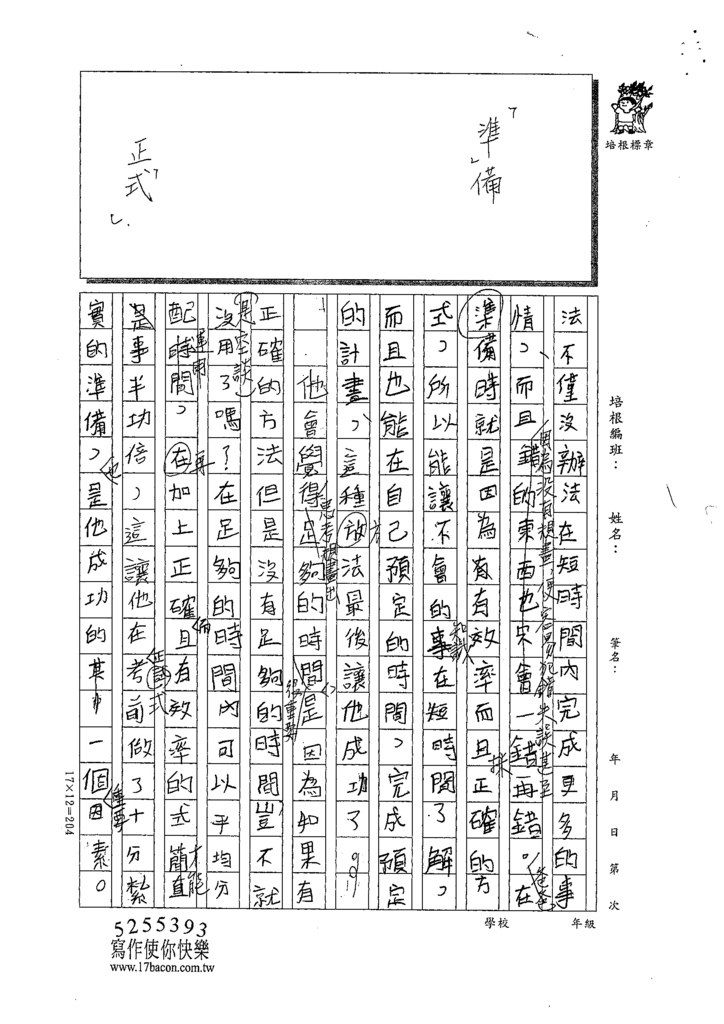 「準備」
「正式」。
培根標章
法不僅沒辦法在短時間內完成更多的事
情，而且錯的東西也只會一錯再錯。在
因為沒有想畫，便容易犯錯失誤甚至
爸爸
準備時就是因為有有效率而且正確的方
採
式，所以能讓不會的事在短時間了解，
知識
而且也能在自己預定的時間，完成預定
的計畫，這種放法最後讓他成功了。
方
他會覺得足夠的時間是因為如果有
思考想畫出
很重要
正確的方法但是沒有足夠的時間豈不就
是空談
沒用了嗎？在足夠的時間內可以平均分
配時間，在加上正確且有效率的式簡直
運用
再
才能
是事半功倍，這讓他在考前做了十分紮
正式
實的準備，是他成功的其中一個因素。
也
重要
培根編班：
姓名：
筆名：
年 月 日 第 次
學校
年級
17×12=204
5255393
寫作使你快樂
www.17bacon.com.tw